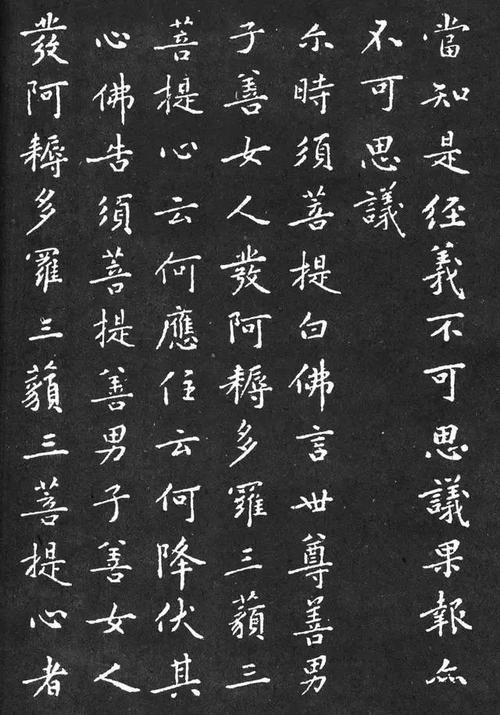 當知是經義不可思議果報亦
不可思議
尒時須菩提白佛言世尊善男
子善女人發阿耨多羅三藐三
菩提心云何應住云何降伏其
心佛告須菩提善男子善女人
發阿耨多羅三藐三菩提心者